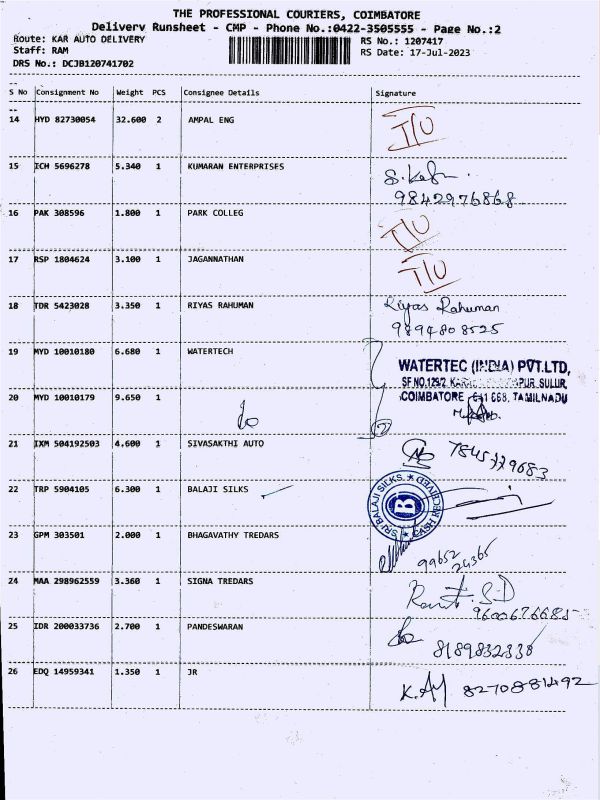 THE PROFESSIONAL COURIERS, COIMBATORE
Delivery Runsheet - CMP - Phone No.:0422-3505555 - Page No.:2
Route: KAR AUTO DELIVERY
RS No.: 1207417
Staff: RAM
RS Date: 17-Jul-2023
DRS No.: DCJB120741702
S No Consignment No Weight PCS Consignee Details Signature
14 HYD 82730054 32.600 2 AMPAL ENG
I/O
15 ICH 5696278 5.340 1 KUMARAN ENTERPRISES
9842976868
16 PAK 308596 1.800 1 PARK COLLEG
I/O
17 RSP 1804624 3.100 1 JAGANNATHAN
I/O
18 TDR 5423028 3.350 1 RIYAS RAHUMAN Riyas Rahuman
9894808525
19 MYD 10010180 6.680 1 WATERTECH
WATERTEC (INDIA) PVT.LTD,
SF NO.129/2 PUR, SULUR,
20 MYD 10010179 9.650 1
COIMBATORE - 641 668, TAMILNADU
21 IXM 504192503 4.600 1 SIVASAKTHI AUTO
7845779683
22 TRP 5904105 6.300 1 BALAJI SILKS
SRI BALAJI SILKS
B
CASH RECEIVED
23 GPM 303501 2.000 1 BHAGAVATHY TREDARS
99652
24365
24 MAA 298962559 3.360 1 SIGNA TREDARS
25 IDR 200033736 2.700 1 PANDESWARAN
8189832338
26 EDQ 14959341 1.350 1 JR
8270881492